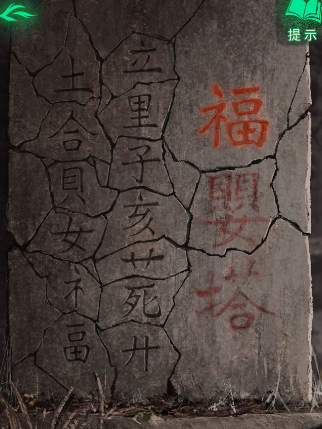 提示
福嬰塔
立里子亥艹死廾
土合貝女礻畐